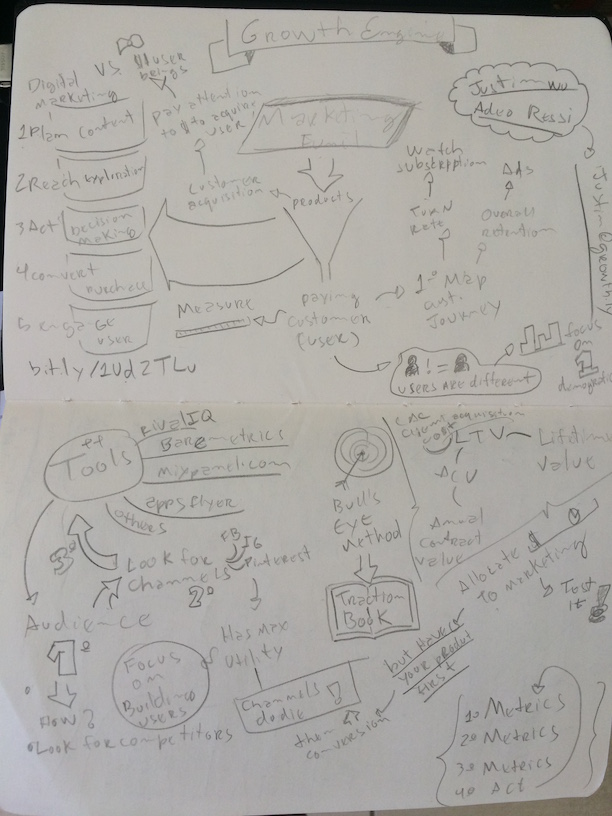 Growth Engine
Digital
marketing
VS.
user
beings
Justin Wu
Adeo Ressi
1 Plan
Content
2 Reach
Exploration
3 Act
Decision
making
4 convert
purchase
5 engage
user
bit.ly/1Ud2TLu
pay attention
to $ to acquire
user
customer
acquisition
Marketing
Funnel
products
paying
customer
(user)
Measure
Watch
subscription
Turn
rate
Ads
Overall
retention
1º Map
cust.
Journey
Justin@growthly
!=
users are different
focus
on
1
demographic
Tools
rival IQ
Baremetrics
mixpanel.com
appsflyer
others
3º
Look for
channels
2º
FB
IG
Pinterest
Audience
1º
How?
Look for competitors
Focus
on
Building
users
Has max
utility
Channels
do die!
Bull's
Eye
Method
Traction
Book
CAC
acquisition
cost
LTV
Lifetime
value
ACV
Annual
contract
value
Allocate $
to marketing
Test
it!
but have
your product
first
then
conversion
1º Metrics
2º Metrics
3º Metrics
4º Act